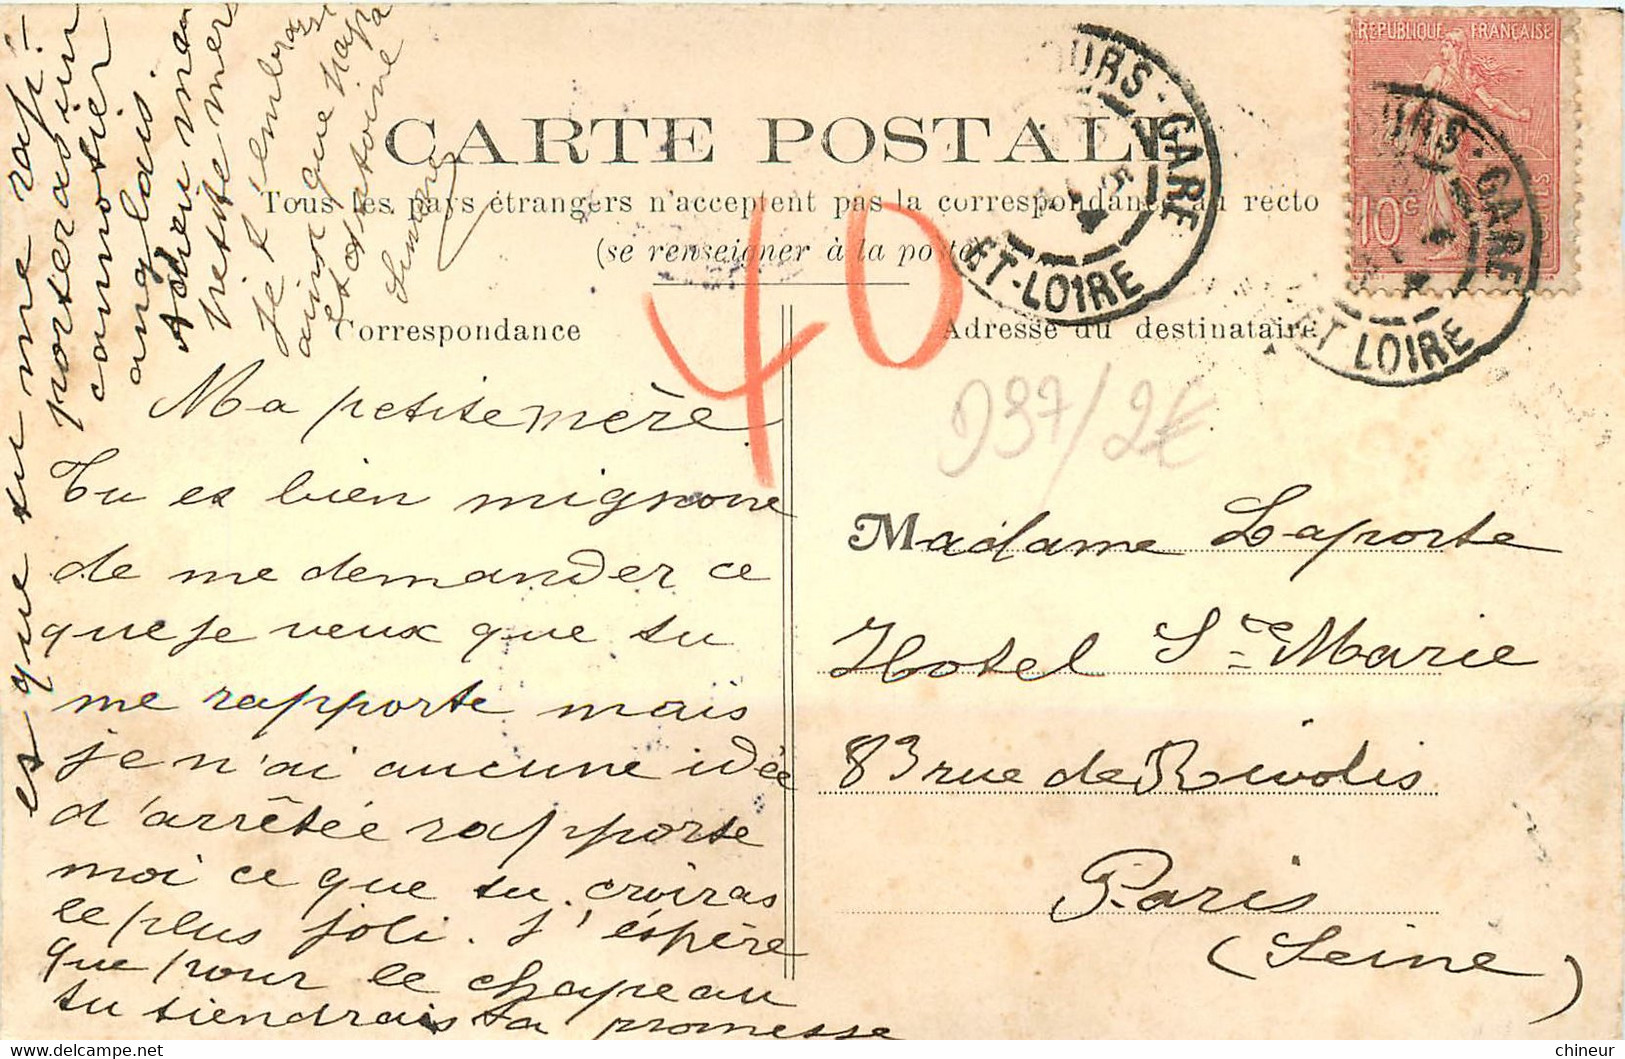 CARTE POSTALE
Tous les pays étrangers n'acceptent pas la correspondance au recto
(se renseigner à la poste)
Correspondance
Adresse du destinataire
RÉPUBLIQUE FRANÇAISE
10c
POSTES
TOURS - GARE
ET-LOIRE
TOURS - GARE
ET LOIRE
40
D37/2€
Ma petite mère
Tu es bien mignone
de me demander ce
que je veux que tu
me rapporte mais
je n'ai aucune idée
d'arrêtée rapporte
moi ce que tu croiras
le plus joli. J'éspère
que pour le chapeau
tu tiendrais ta promesse
et que tu me rap-
porteras un
cannotier
anglais.
Adieu ma
petite mère
Je t'embrasse
ainsi que Papa
et Antoine
Simone
Madame Laporte
Hotel Ste Marie
83 rue de Rivolis
Paris
(Seine)
chineur